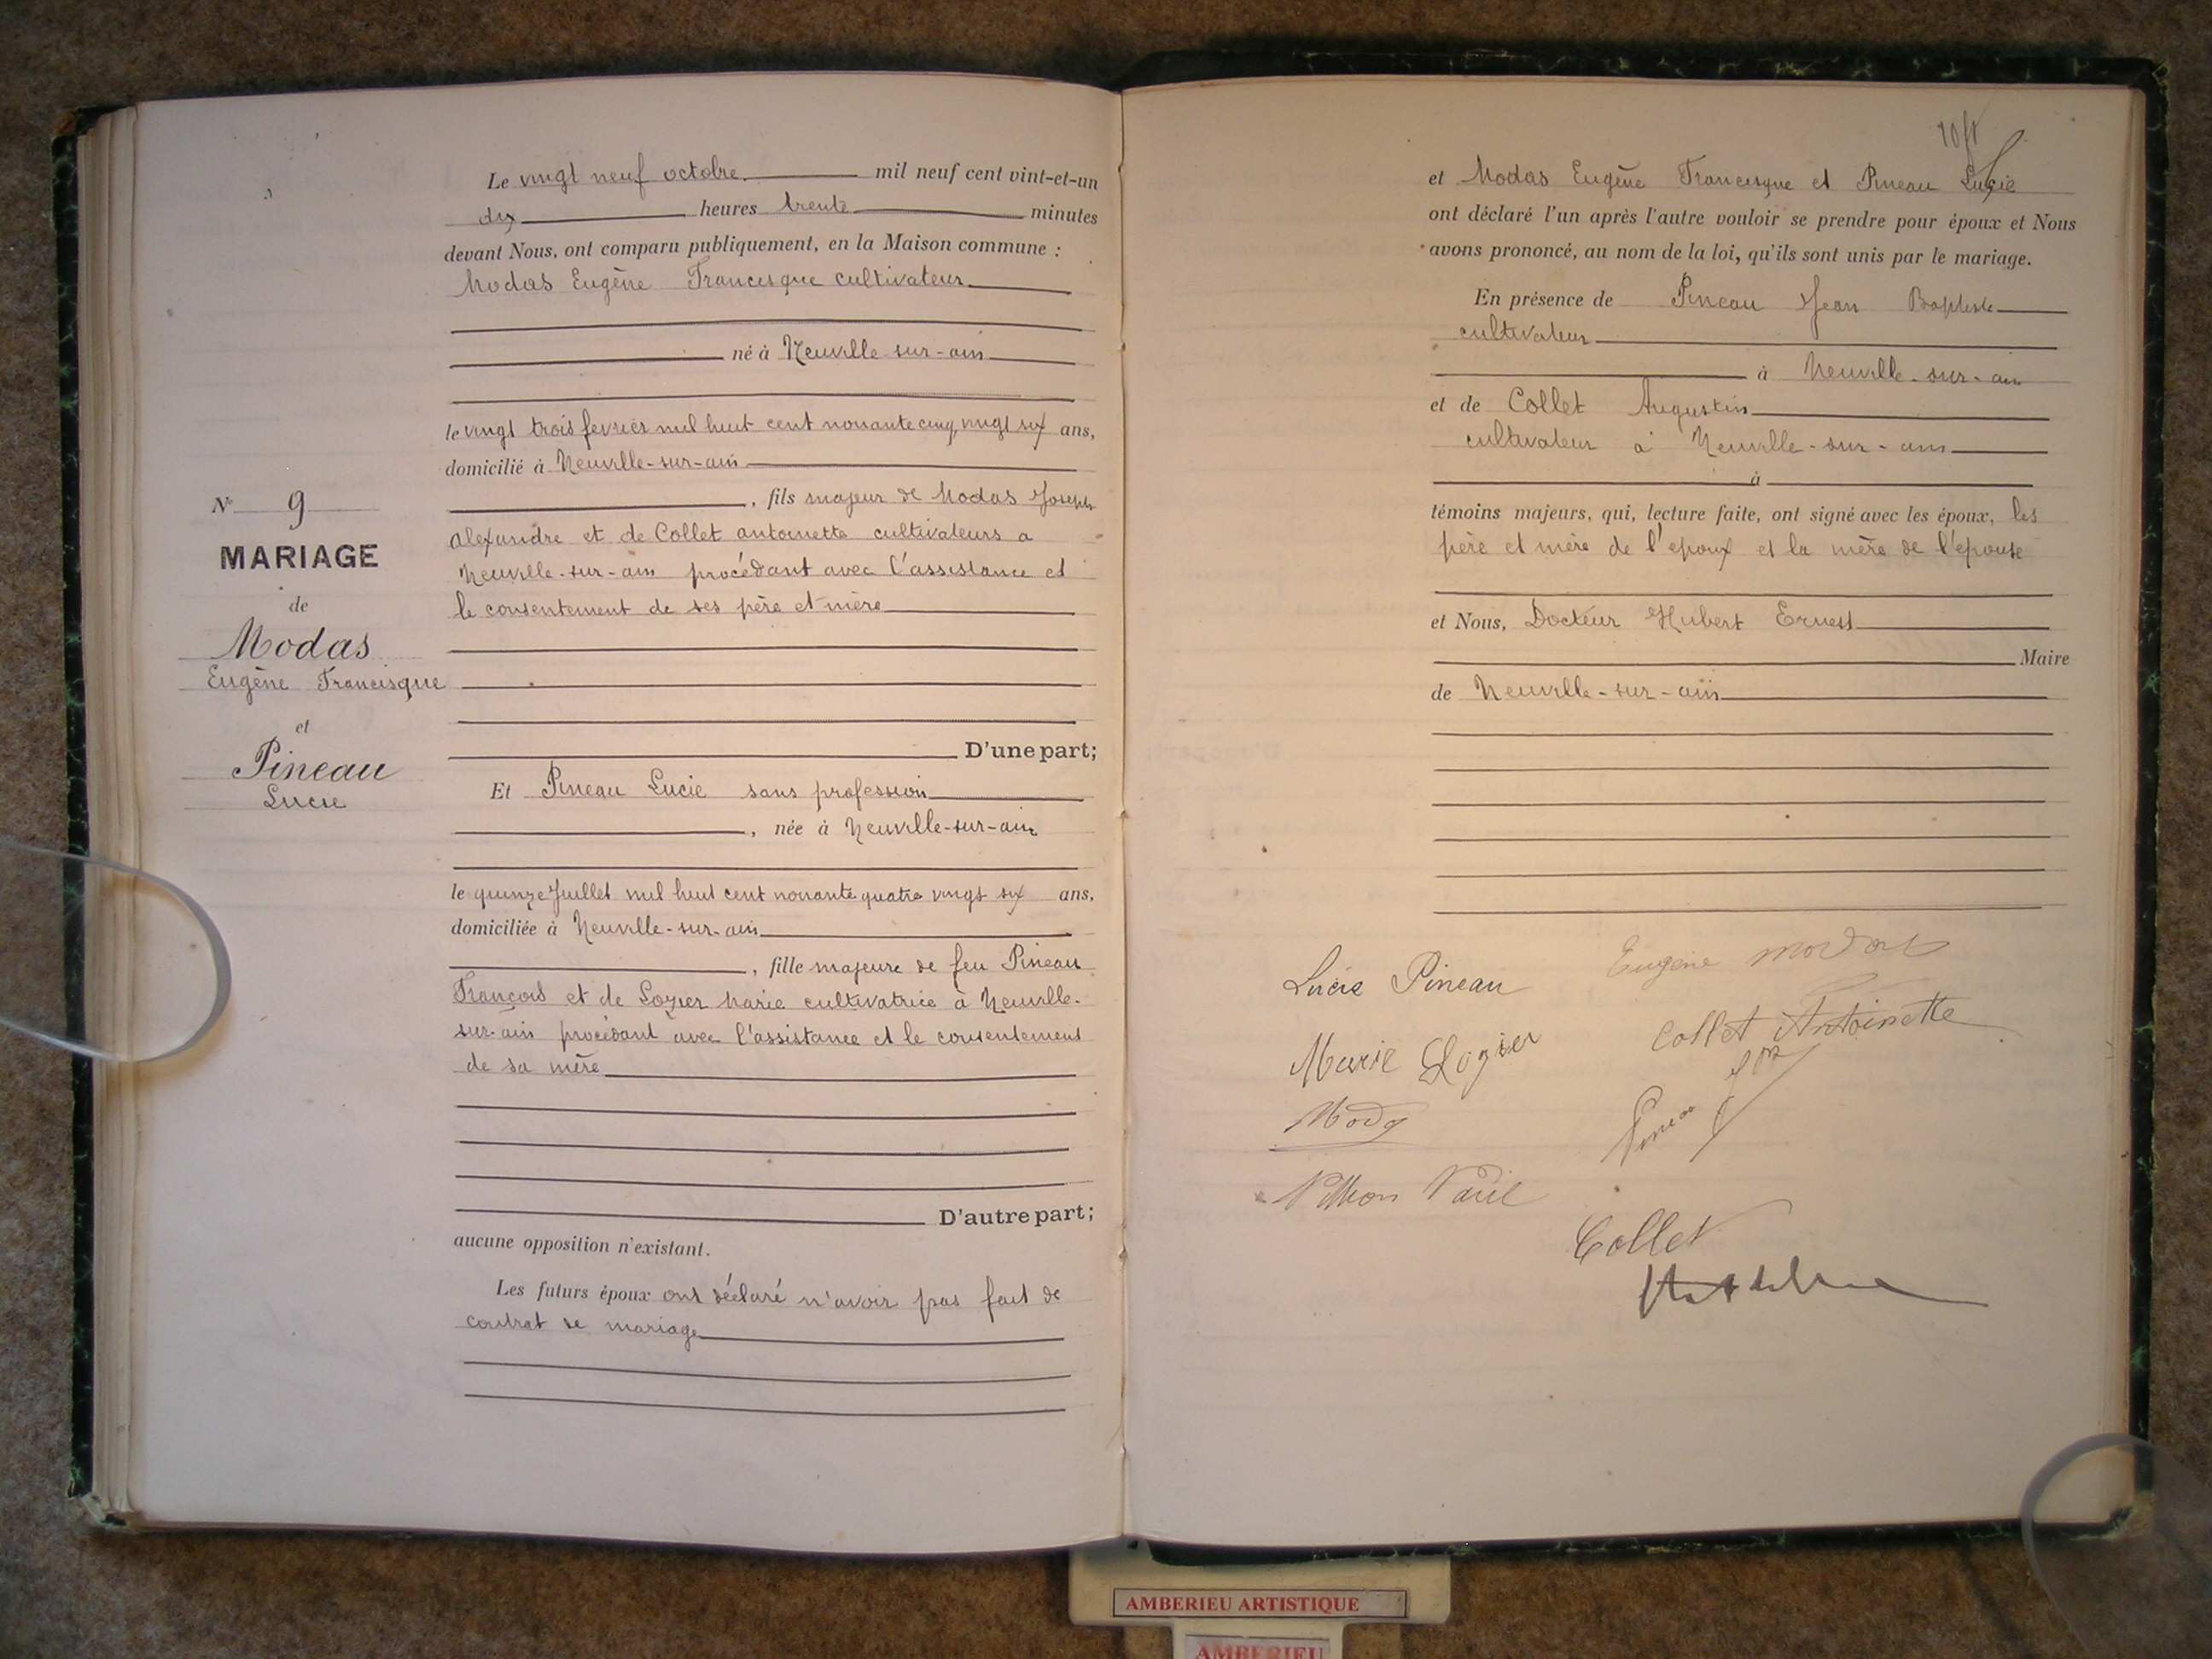 Le vingt neuf octobre mil neuf cent vint-et-un
dix heures trente minutes
devant Nous, ont comparu publiquement, en la Maison commune :
Modas Eugène Francisque cultivateur
né à Neuville sur-ain
le vingt trois fevrier mil huit cent nonante cinq, vingt six ans,
domicilié à Neuville-sur-ain
, fils majeur de Modas Joseph
alexandre et de Collet antoinette cultivateurs a
Neuville-sur-ain procédant avec l'assistance et
le consentement de ses père et mère
D'une part;
Et Pineau Lucie sans profession
, née à Neuville-sur-ain
le quinze Juillet mil huit cent nonante quatre vingt six ans,
domiciliée à Neuville-sur-ain
, fille majeure de feu Pineau
François et de Lozier Marie cultivatrice à Neuville-
sur-ain procédant avec l'assistance et le consentement
de sa mère
D'autre part;
aucune opposition n'existant.
Les futurs époux ont déclaré n'avoir pas fait de
contrat de mariage
N° 9
MARIAGE
de
Modas
Eugène Francisque
et
Pineau
Lucie
et Modas Eugène Francisque et Pineau Lucie
ont déclaré l'un après l'autre vouloir se prendre pour époux et Nous
avons prononcé, au nom de la loi, qu'ils sont unis par le mariage.
En présence de Pineau Jean Baptiste
cultivateur
à Neuville-sur-ain
et de Collet Augustin
cultivateur à Neuville-sur-ain
à
témoins majeurs, qui, lecture faite, ont signé avec les époux, les
père et mère de l'epoux et la mère de l'epouse
et Nous, Docteur Hubert Ernest
Maire
de Neuville-sur-ain
Lucie Pineau Eugène Modas
Marie Lozier Collet Antoinette
Paul
Collet
AMBERIEU ARTISTIQUE
AMBERIEU